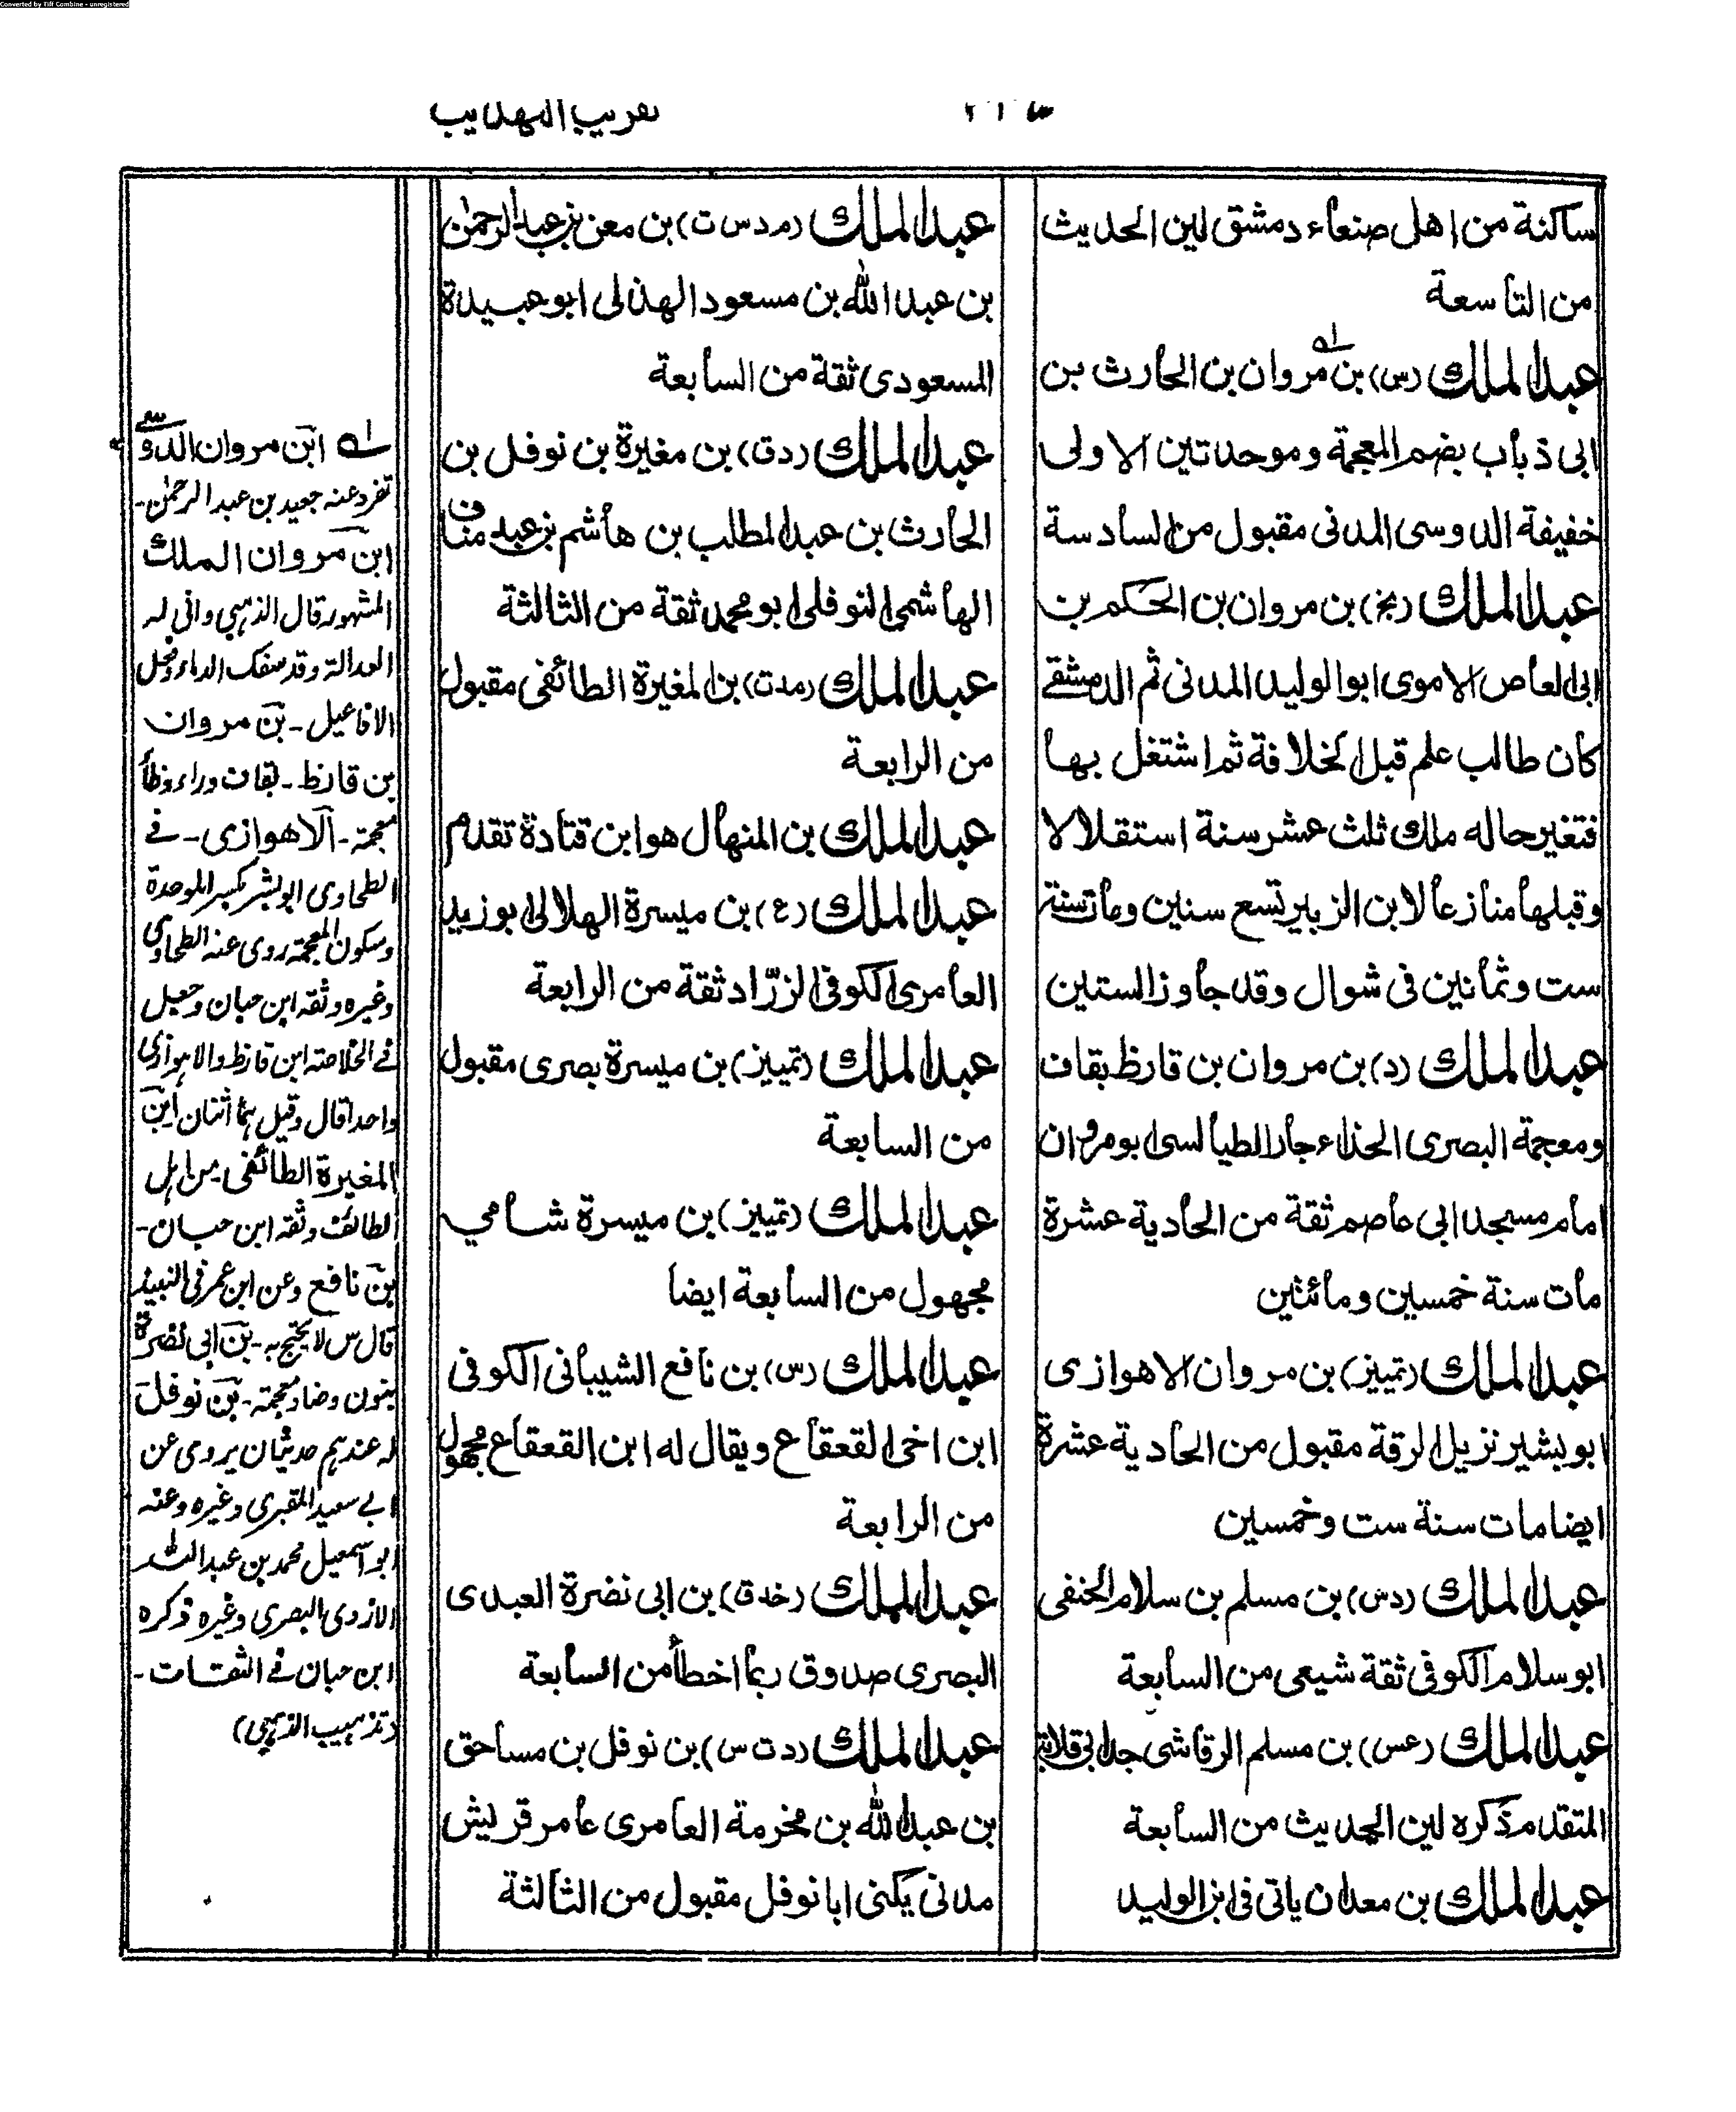 Converted by Tiff Combine - unregistered
تقريب التهذيب
ساكنة من اهل صنعاء دمشق لين الحديث
من التاسعة
عبد الملك (س) بن مروان بن الحارث بن
ابى ذباب بضم المعجمة وموحدتين الاولى
خفيفة الدوسى المدنى مقبول من السادسة
عبد الملك (بخ) بن مروان بن الحكم بن
ابى العاص الاموى ابو الوليد المدنى ثم الدمشقى
كان طالب علم قبل الخلافة ثم اشتغل بها
فتغير حاله ملك ثلث عشر سنة استقلالا
وقبلها منازعا لابن الزبير تسع سنين ومات سنة
ست وثمانين فى شوال وقد جاوز الستين
عبد الملك (د) بن مروان بن قارظ بقاف
ومعجمة البصرى الحذاء جار الطيالسى ابو مروان
امام مسجد ابى عاصم ثقة من الحادية عشرة
مات سنة خمسين ومائتين
عبد الملك (تمييز) بن مروان الاهوازى
ابو بشير نزيل الرقة مقبول من الحادية عشرة
ايضا مات سنة ست وخمسين
عبد الملك (دس) بن مسلم بن سلام الحنفى
ابو سلام الكوفى ثقة شيعى من السابعة
عبد الملك (عس) بن مسلم الرقاشى جد ابى قلابة
المتقدم ذكره لين الحديث من السابعة
عبد الملك بن معدان ياتى فى ابن الوليد
عبد الملك (مدس ت) بن معن بن عبد الرحمٰن
بن عبد الله بن مسعود الهذلى ابو عبيدة
المسعودى ثقة من السابعة
عبد الملك (دق) بن مغيرة بن نوفل بن
الحارث بن عبد المطلب بن هاشم بن عبد مناف
الهاشمى النوفلى ابو محمد ثقة من الثالثة
عبد الملك (مدت) بن المغيرة الطائفى مقبول
من الرابعة
عبد الملك بن المنهال هو ابن قتادة تقدم
عبد الملك (ع) بن ميسرة الهلالى ابو زيد
العامرى الكوفى الزرّاد ثقة من الرابعة
عبد الملك (تمييز) بن ميسرة بصرى مقبول
من السابعة
عبد الملك (تمييز) بن ميسرة شامي
مجهول من السابعة ايضا
عبد الملك (س) بن نافع الشيبانى الكوفى
ابن اخى القعقاع ويقال له ابن القعقاع مجهول
من الرابعة
عبد الملك (خدق) بن ابى نضرة العبدى
البصرى صدوق ربما اخطأ من السابعة
عبد الملك (دت س) بن نوفل بن مساحق
بن عبد الله بن مخرمة العامرى عامر قريش
مدنى يكنى ابا نوفل مقبول من الثالثة
له ابن مروان الدوسى
تفرد عنه جعيد بن عبد الرحمٰن-
ابن مروان الملك
المشهور قال الذهبي وانى له
العدالة وقد سفك الدماء وفعل
الافاعيل- بن مروان
بن قارظ- بقاف وراء وظاء
معجمة- الاهوازى- في
الطحاوى ابو بشر بكسر الموحدة
وسكون المعجمة روى عنه الطحاوي
وغيره وثقه ابن حبان وجعل
في الخلاصة ابن قارظ والاهوازى
واحدا قال وقيل هما اثنان ابن
المغيرة الطائفى من اهل
الطائف وثقه ابن حبان-
بن نافع وعن ابن عمر فى النبيذ
قال س لا يحتج به- بن ابى نضرة
بنون وضاد معجمة- بن نوفل
له عندهم حديثان يروى عن
ابي سعيد المقبرى وغيره وعنه
ابو اسمعيل محمد بن عبد الله
الازدى البصرى وغيره ذكره
ابن حبان في الثقات-
(تذهيب الذهبي)